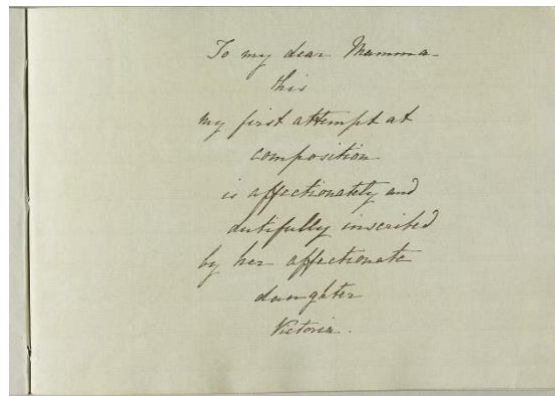 To my dear Mamma
this
my first attempt at
composition
is affectionately and
dutifully inscribed
by her affectionate
daughter
Victoria.